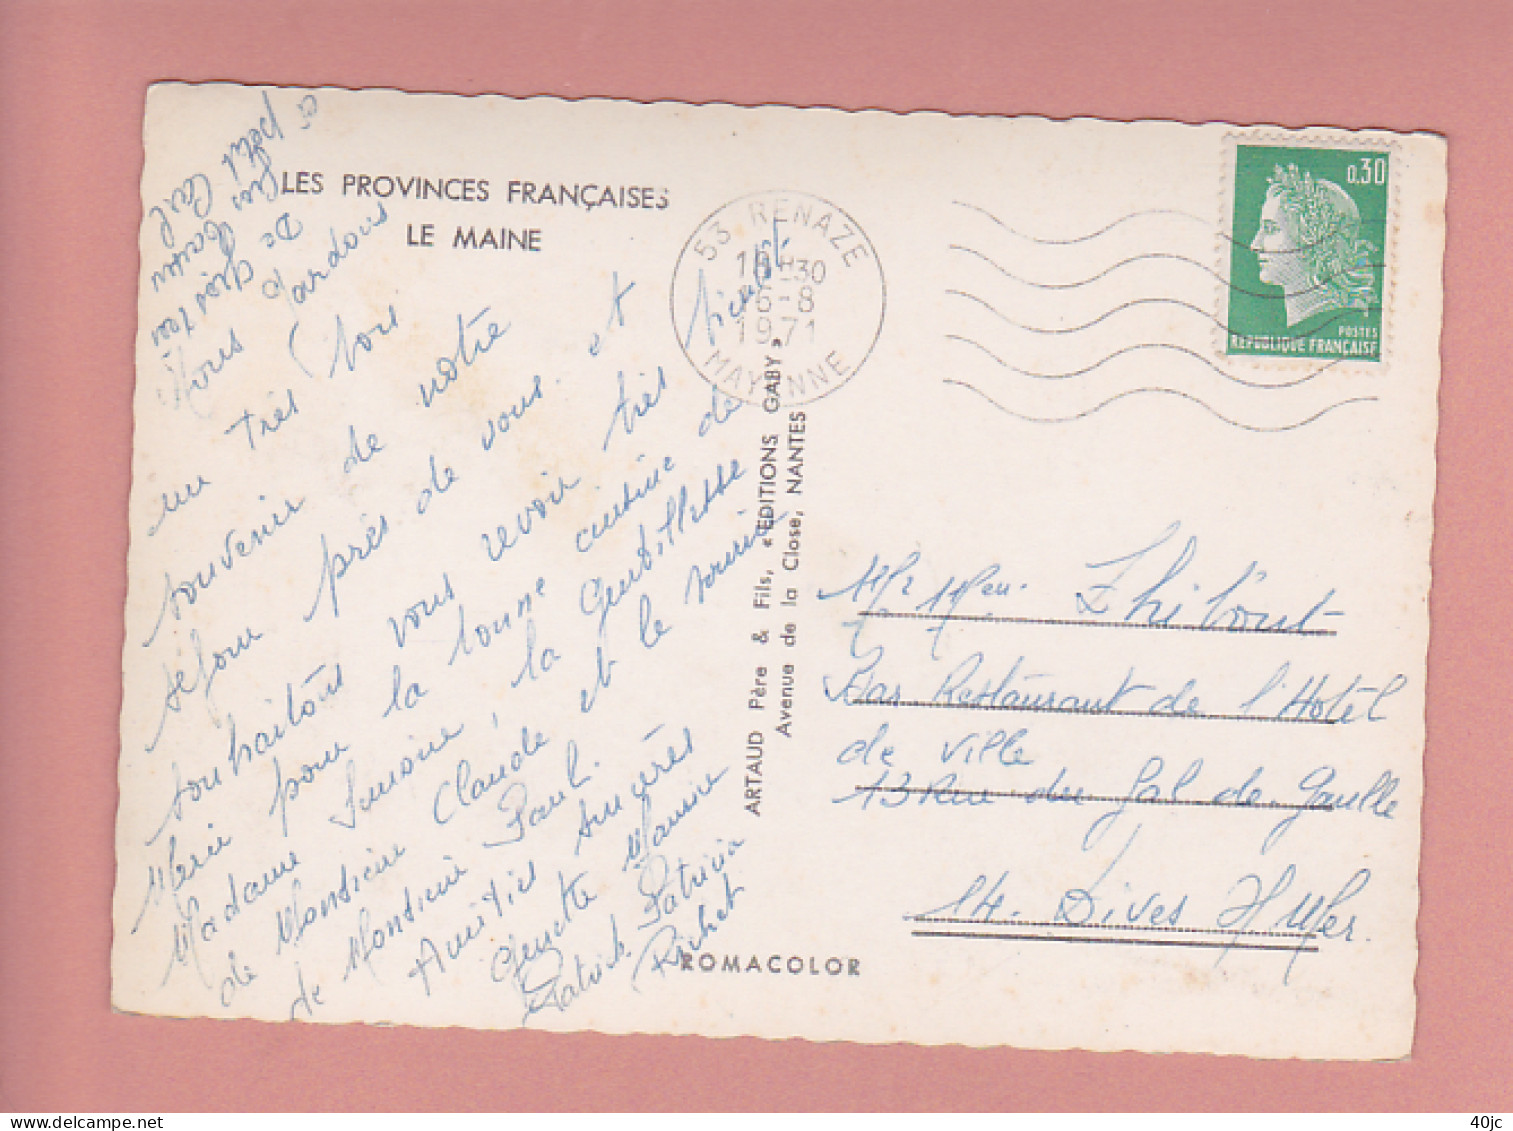 LES PROVINCES FRANÇAISES
LE MAINE
Nous Gardons
un très bon
souvenir de notre
séjour près de vous. et
souhaitons vous revoir très bientôt
Merci pour la bonne cuisine de
Madame Simone, la Gentillesse
de Monsieur Claude et le sourire
de Monsieur Paul.
Amitiés sincères
Ginette Maurice
Patrick Patricia
Richet
petit
De
ARTAUD Père & Fils, « EDITIONS GABY »
Avenue de la Close, NANTES
ROMACOLOR
53 RENAZE
18H30
6-8
1971
MAYENNE
0,30
POSTES
REPUBLIQUE FRANÇAISE
Mr Men. Thibout
Bar Restaurant de l'Hotel
de ville
13 Rue du Gal de Gaulle
14. Dives S/Mer.
delcampe.net
40jc